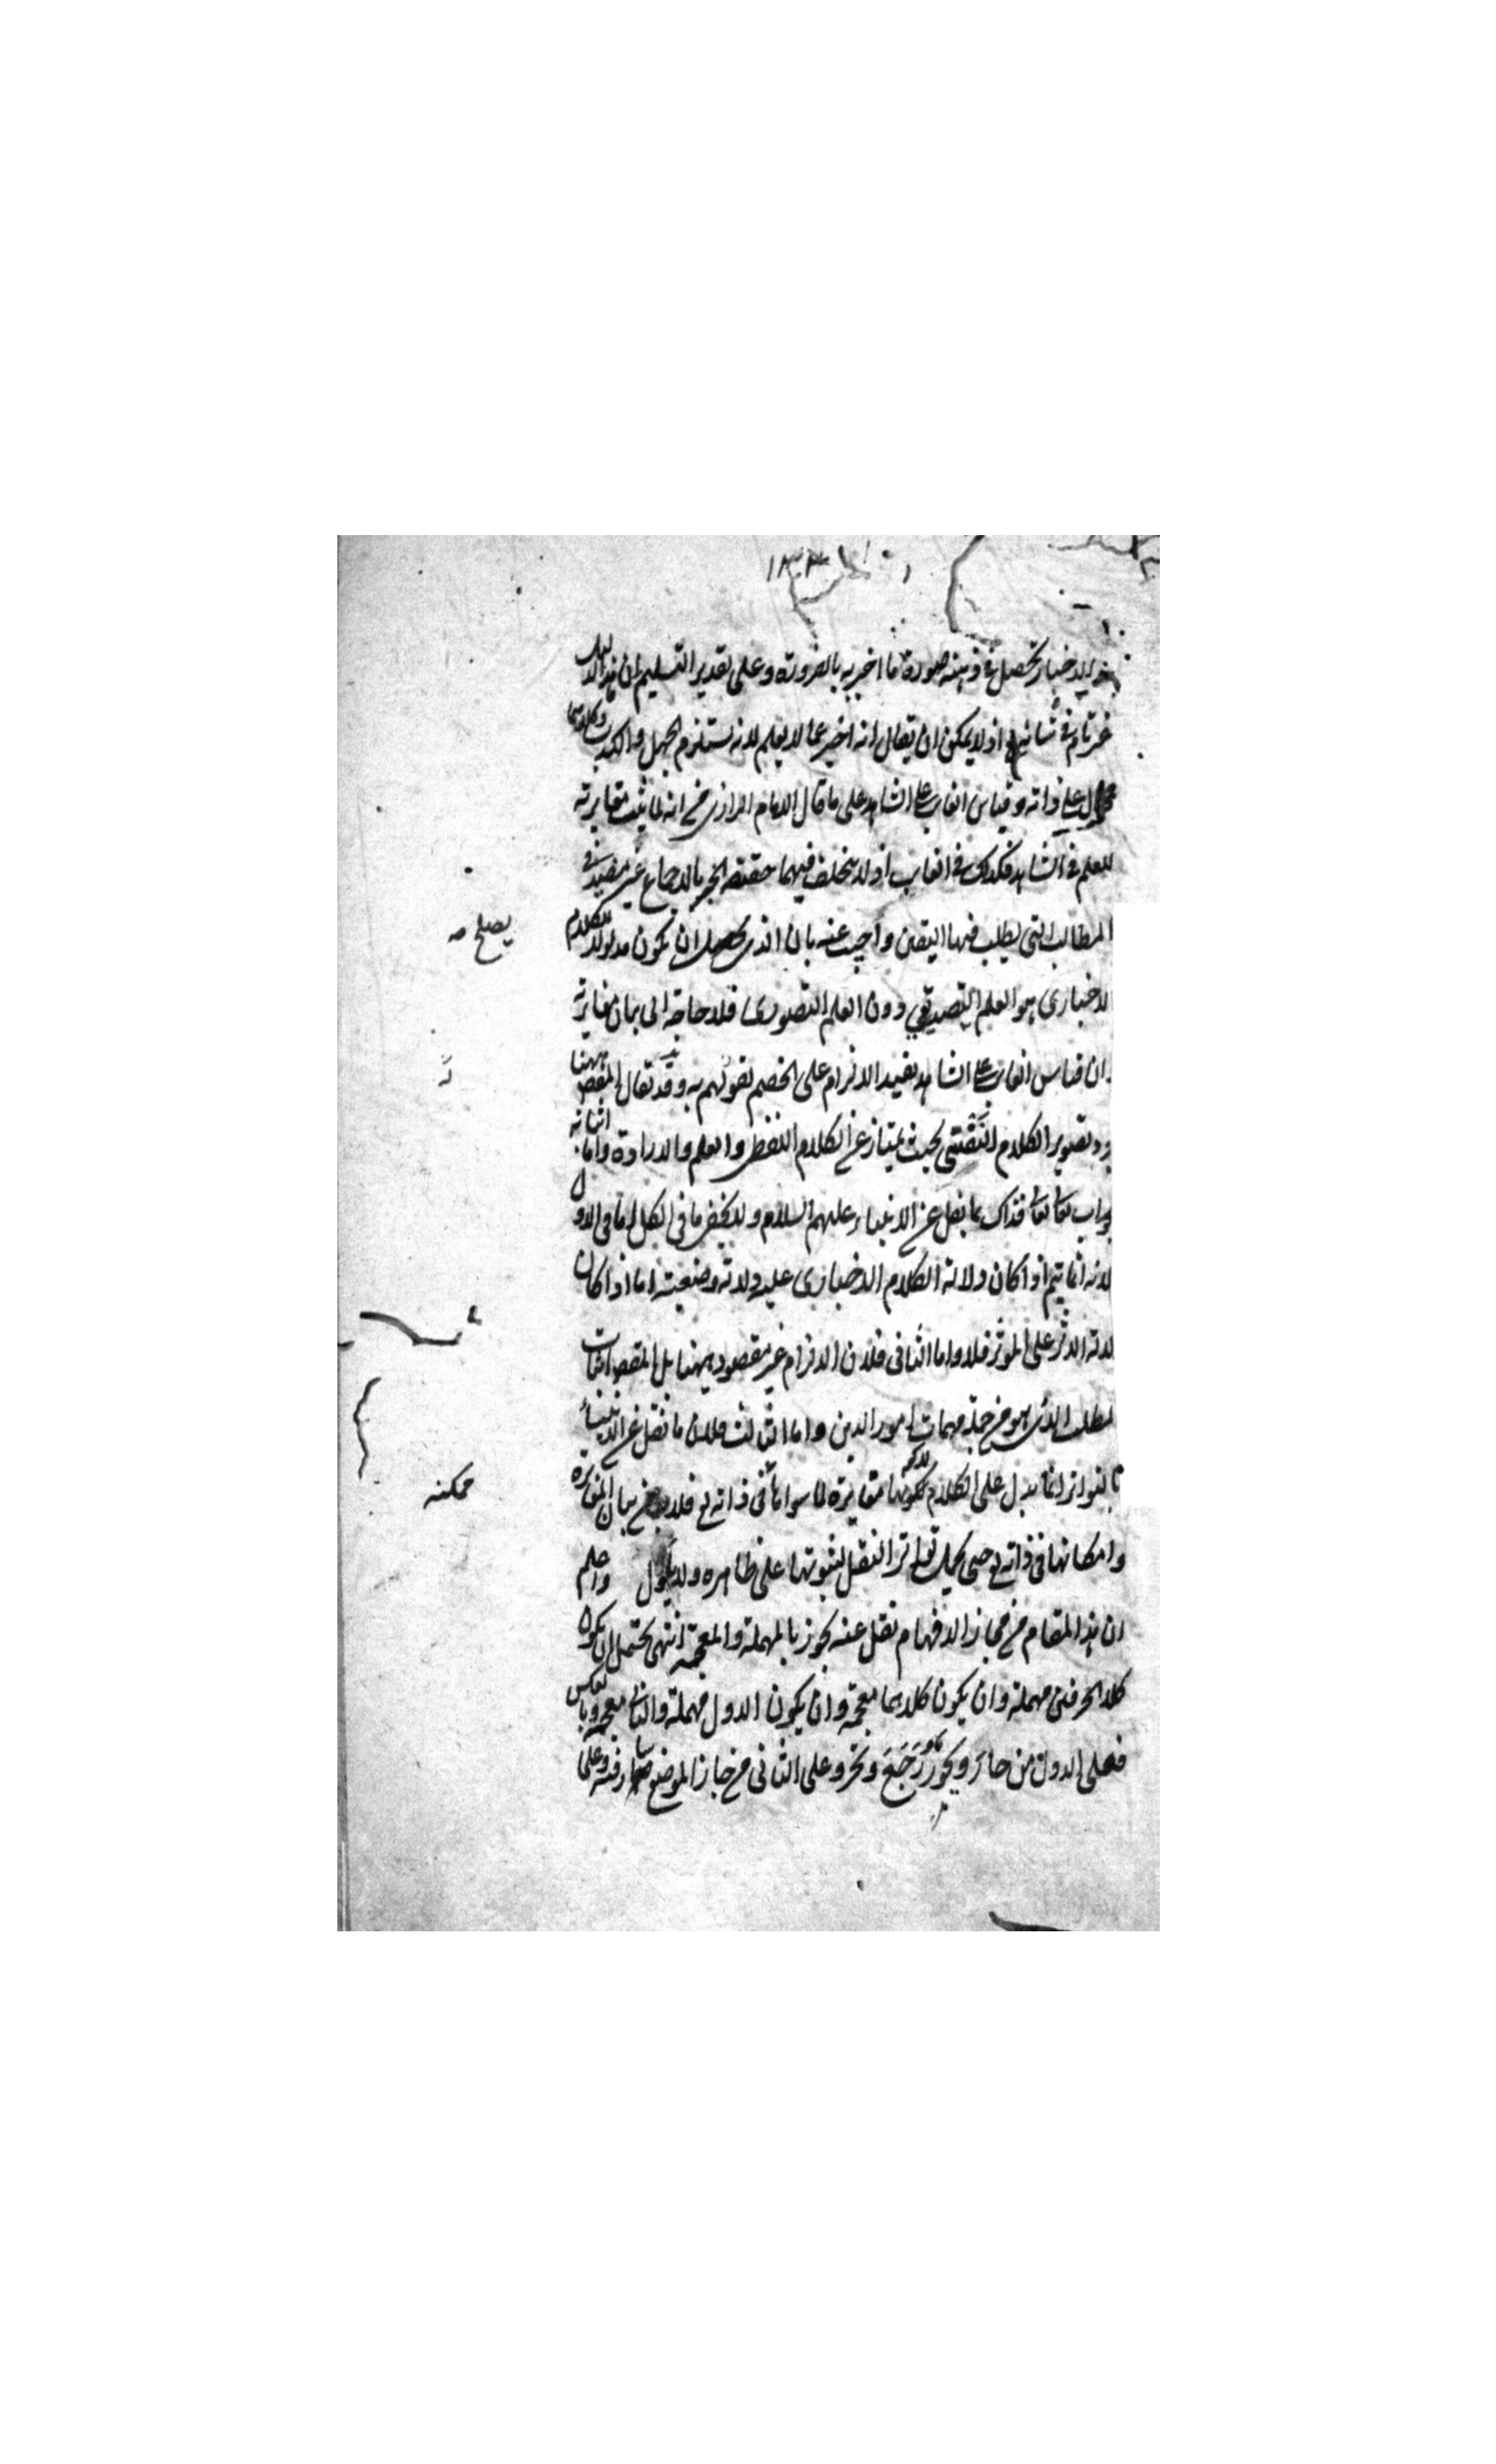 الاخبار تحصل في ذهنه صورة ما اخبر به بالضرورة وعلى تقدير التسليم ان هذا الدليل
غير تام في شانه تع اذ لا يمكن ان يقال انه اخبر عما لا يعلم لانه يستلزم الجهل والكذب وكلاهما
محال على ذاته وقياس الغائب على الشاهد على ما قال الامام الرازي من انه لما ثبت مغايرته
للعلم في الشاهد فكذلك في الغائب اذ لا يختلف فيهما حقيقة الخبر بالاجماع غير مفيد في
المطالب التي يطلب فيها اليقين واجيب عنه بان الذي ان يكون مدلولا للكلام
الاخباري هو العلم التصديقي دون العلم التصوري فلا حاجة الى بيان مغايرته
وان قياس الغائب على الشاهد يفيد الالزام على الخصم لقولهم به وقد يقال المقصد ههنا
تصوير الكلام النفسي بحيث يمتاز عن الكلام اللفظي والعلم والارادة واما اثباته
تعالى فذاك بما نقل عن الانبياء عليهم السلام ولا يخفى ما في الكل اما في الاول
لانه انما يتم اذا كان دلالة الكلام الاخباري عليه دلالة وضعية اما اذا كان
دلالة الاثر على المؤثر فلا واما الثاني فلان الالزام غير مقصود ههنا بل المقصد اثبات
المطلب الذي هو من جملة مهمات امور الدين واما الثالث فلان ما نقل عن الانبياء
بالتواتر انما يدل على الكلام مغايرة لما سواها في ذاته تع فلا بد من بيان المغايرة
وامكانها في ذاته تع حتى يحمل تواتر النقل لثبوتها على ظاهره ولا يأول واعلم
ان هذا المقام من مجاز الافهام نقل عنه يجوز بالمهملة والمعجمة انتهى يحتمل ان يكون
كلا الحرفين مهملة وان يكون كلاهما معجمة وان يكون الاول مهملة والثاني معجمة وبالعكس
فعلى الاول من حار ويحور رجع ونحوه وعلى الثاني من جاز الموضع سار فيه وعلى
يصلح صه
ممكنه